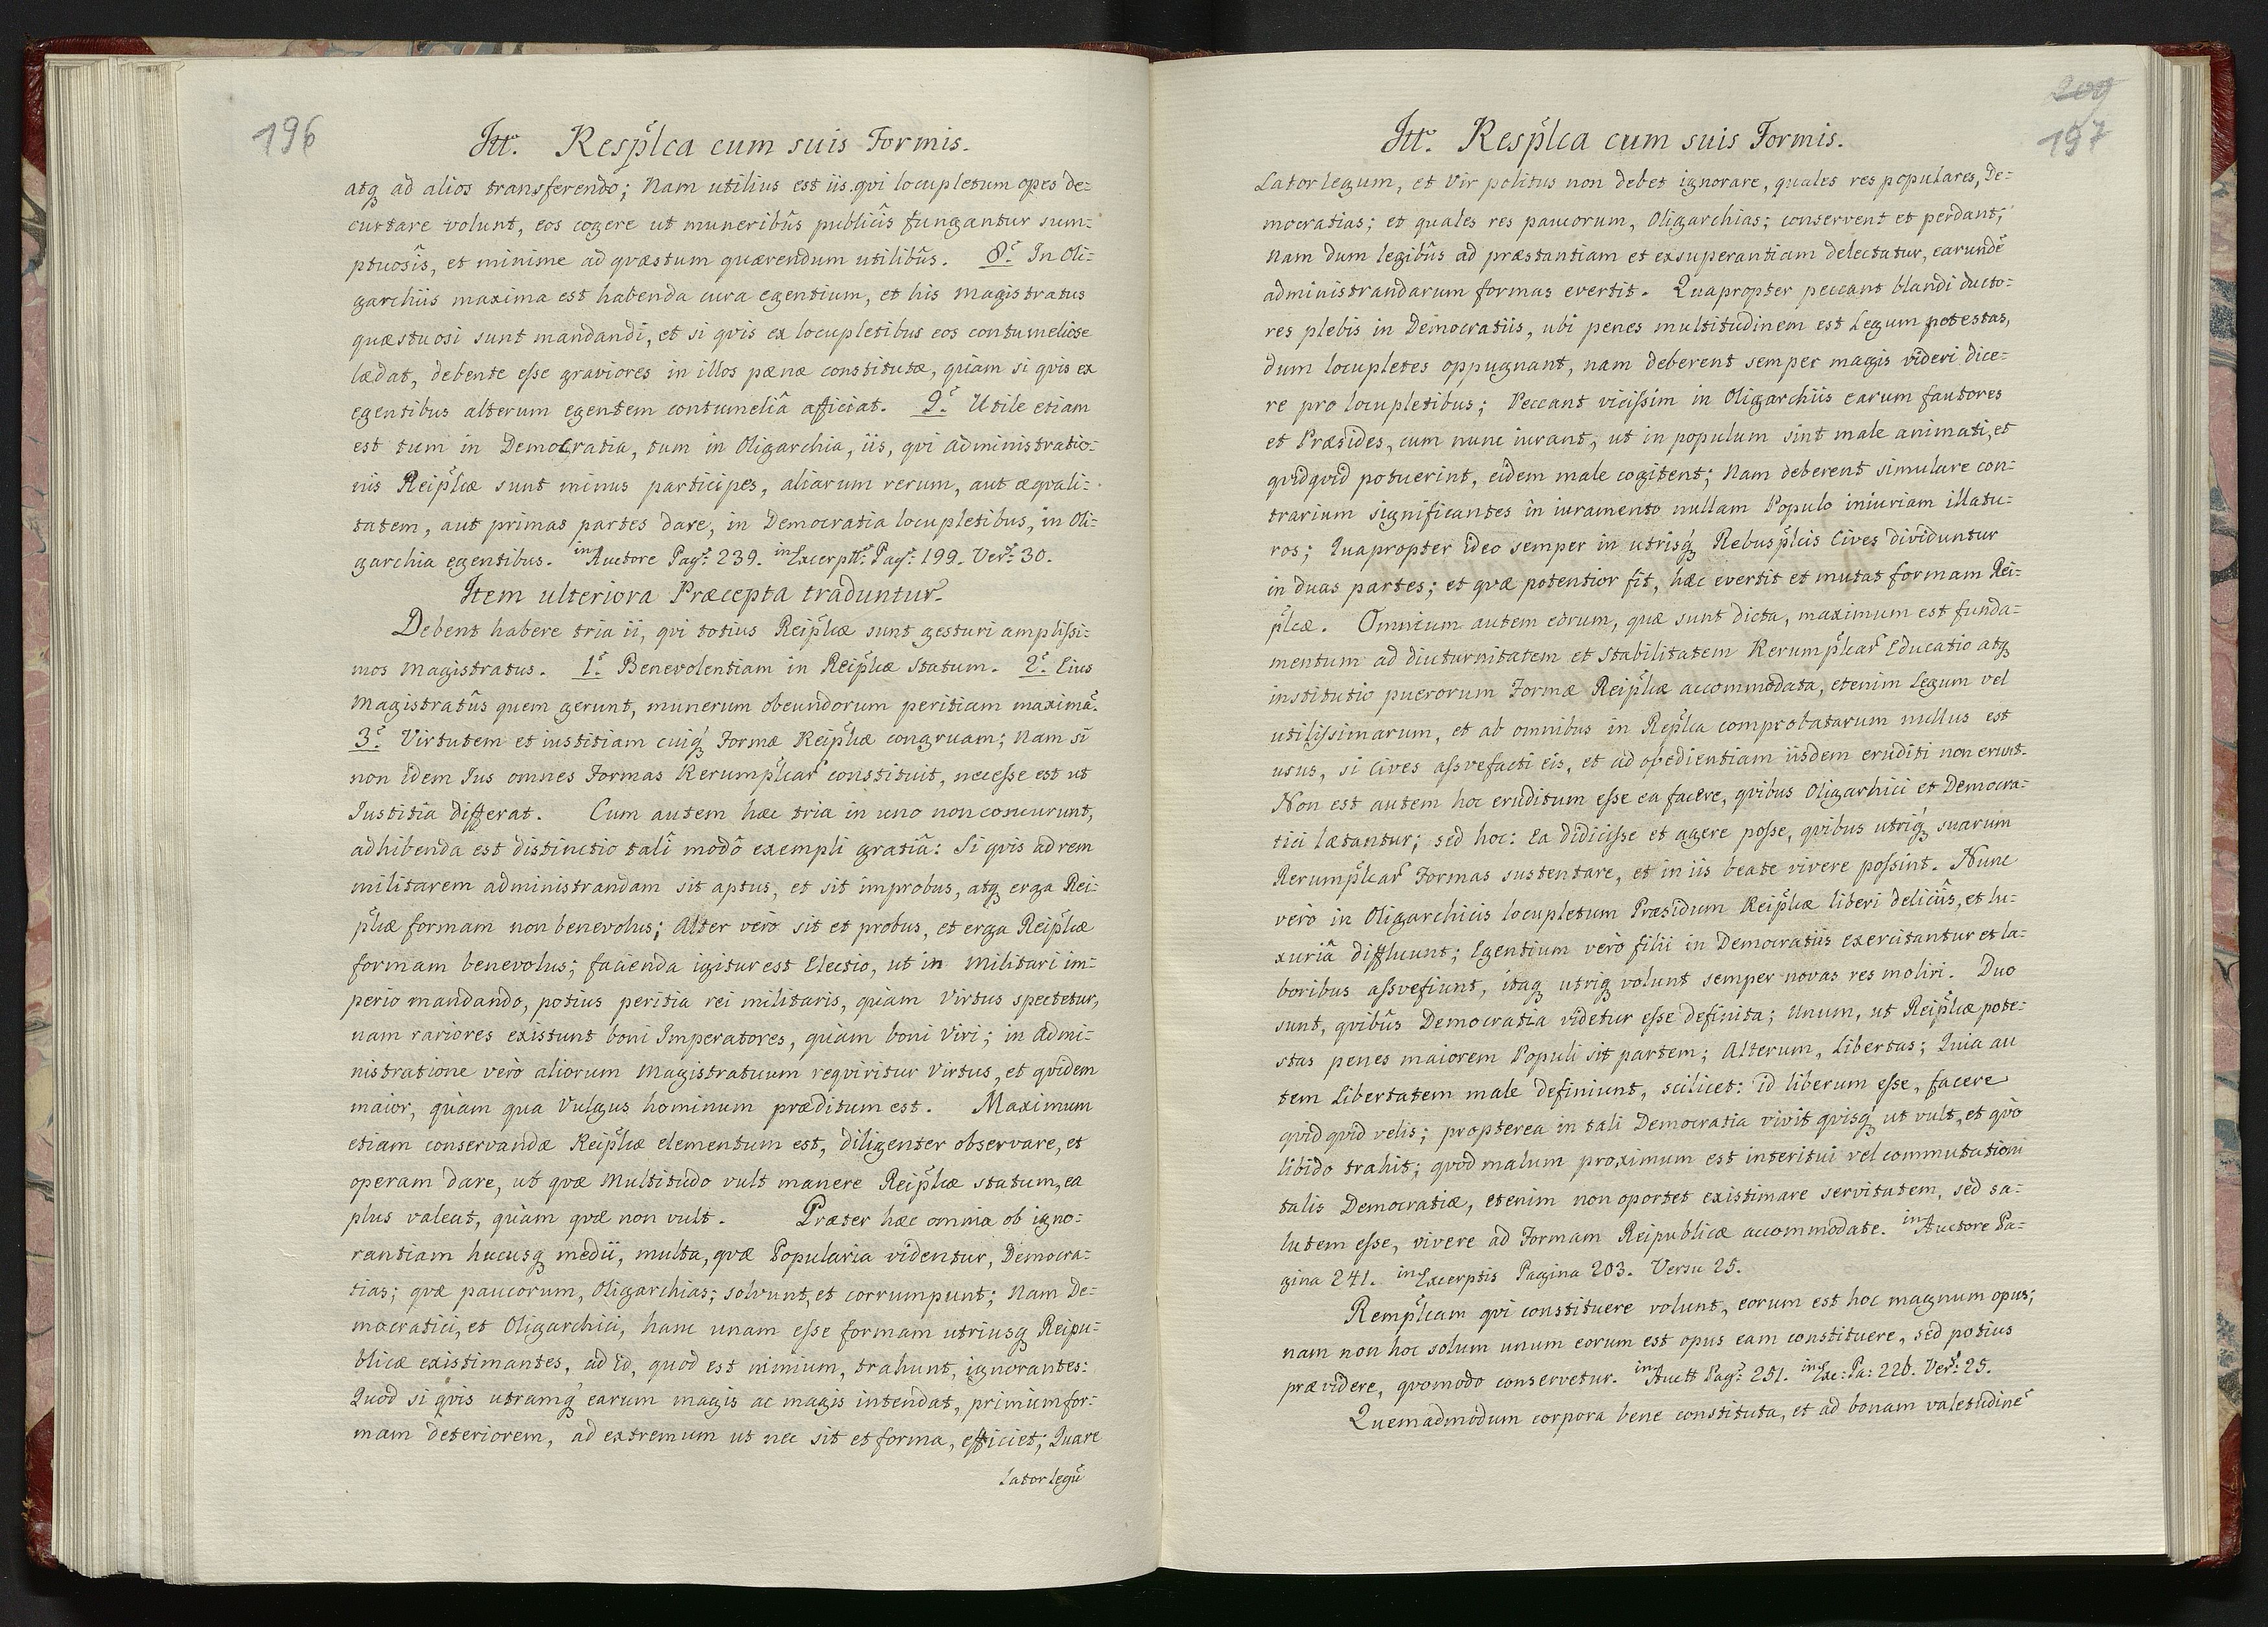 196
Itt. Resplca cum suis Formis.
atq ad alios transferendo; Nam utilius est iis qvi locupletum opes de=
curtare volunt, eos cogere ut muneribûs publicîs fungantur sum=
ptuosîs, et minime ad qvæstum quærendum utilibûs. 8.° In Oli=
garchiis maxima est habenda cura egentium, et his Magistratus
quæstuosi sunt mandandi, et si qvis ex locupletibus eos contumeliose
lædat, debente esse graviores in illos pænæ constitutæ, quàm si qvis ex
egentibus alterum egentem contumeliâ afficiat. 9.° Utile etiam
est tum in Democratia, tum in Oligarchia, iis, qvi administratio=
nis Reiplcæ sunt minus participes, aliarum rerum, aut æqvali=
tatem, aut primas partes dare, in Democratia locupletibus, in Oli=
garchia egentibus. in Auctore Pag: 239. in Excerptt: Pag: 199. Ver: 30.
Item ulteriora Præcepta traduntur.
Debent habere tria ii, qvi totius Reiplcæ sunt gesturi amplissi=
mos Magistratus. 1.° Benevolentiam in Reiplcæ statum. 2.° Eius
Magistratûs quem gerunt, munerum obeundorum peritiam maximã.
3.° Virtutem et iustitiam cuiq Formæ Reiplcæ congruam; Nam si
non idem Jus omnes Formas Rerumplcar constituit, necesse est ut
Justitia differat. Cum autem hæc tria in uno non concurunt,
adhibenda est distinctio talî modô exempli gratiâ: Si qvis ad rem
militarem administrandam sit aptus, et sit improbus, atq erga Rei=
plcæ formam non benevolus; Alter verò sit et probus, et erga Reiplcæ
formam benevolus; facienda igitur est Electio, ut in Militari im=
perio mandando, potius peritia rei militaris, quàm Virtus spectetur,
nam rariores existunt boni Imperatores, quàm boni Viri; in Admi=
nistratione verò aliorum Magistratuum reqviritur Virtus, et qvidem
maior, quàm qua Vulgus hominum præditum est. Maximum
etiam conservandæ Reiplcæ elementum est, diligenter observare, et
operam dare, ut qvæ Multitudo vult manere Reiplcæ statum, ea
plus valeat, quàm qvæ non vult. Præter hæc omnia ob igno=
rantiam hucusq medii, multa, qvæ Popularia videntur, Democra=
tias; qvæ paucorum, Oligarchias; solvunt, et corrumpunt; Nam De=
mocratici, et Oligarchici, hanc unam esse formam utriusq Reipu=
blicæ existimantes, ad id, quod est nimium, trahunt, ignorantes:
Quod si qvis utramq earum magis ac magis intendat, primùm for=
mam deteriorem, ad extremum ut nec sit et forma, efficiet; Quare
Lator Legũ
209
197
Itt. Resplca cum suis Formis.
Lator legum, et Vir politus non debet ignorare, quales res populares, De=
mocratias; et quales res paucorum, Oligarchias; conservent et perdant;
Nam dum legibûs ad præstantiam et exsuperantiam delectatur, earundẽ
administrandarum formas evertit. Quapropter peccant blandi ducto=
res plebis in Democratiis, ubi penes multitudinem est Legum potestas,
dum locupletes oppugnant, nam deberent semper magis videri dice=
re pro locupletibus; Peccant vicissim in Oligarchiis earum fautores
et Præsides, cum nunc iurant, ut in populum sint male animati, et
qvidqvid potuerint, eidem male cogitent; Nam deberent simulare con=
trarium significantes in iuramento nullam Populo iniuriam illatu=
ros; Quapropter ideo semper in utrisq Rebusplcis Cives dividuntur
in duas partes; et qvæ potentior fit, hæc evertit et mutat formam Rei=
plcæ. Omnium autem eorum, quæ sunt dicta, maximum est funda=
mentum ad diuturnitatem et stabilitatem Rerumplcar Educatio atq
institutio puerorum Formæ Reiplcæ accommodata, etenim Legum vel
utilissimarum, et ab omnibus in Replca comprobatarum nullus est
usus, si Cives assvefacti eis, et ad obedientiam iisdem eruditi non erunt.
Non est autem hoc eruditum esse ea facere, qvibus Oligarhici et Democra=
tici lætantur; sed hoc: Ea didicisse et agere posse, qvibus utriq suarum
Rerumplcar Formas sustentare, et in iis beate vivere possint. Nunc
verò in Oligarchicis locupletum Præsidum Reiplcæ liberi deliciîs, et lu=
xuriâ diffluunt; Egentium verò filii in Democratiis exercitantur et la=
boribus assvefiunt, itaq utriq volunt semper novas res moliri. Duo
sunt, qvibûs Democratia videtur esse definita; Unum, ut Reiplcæ pote=
stas penes maiorem Populi sit partem; Alterum, Libertas; Quia au
tem Libertatem male definiunt, scilicet: id liberum esse, facere
qvidqvid velis; propterea in tali Democratia vivit qvisq ut vult, et qvò
libido trahit; qvod malum proximum est interitui vel commutationi
talis Democratiæ, etenim non oportet existimare servitutem, sed sa=
lutem esse, vivere ad Formam Reipublicæ accommodate. in Auctore Pa=
gina 241. in Excerptis Pagina 203. Versu 25.
Remplcam qvi constituere volunt, eorum est hoc magnum opus;
nam non hoc solum unum eorum est opus eam constituere, sed potius
prævidere, qvomodo conservetur. in Auctt Pag: 251. in Exc: Pa: 226. Ver: 25.
Quemadmodum corpora bene constituta, et ad bonam valetudinẽ